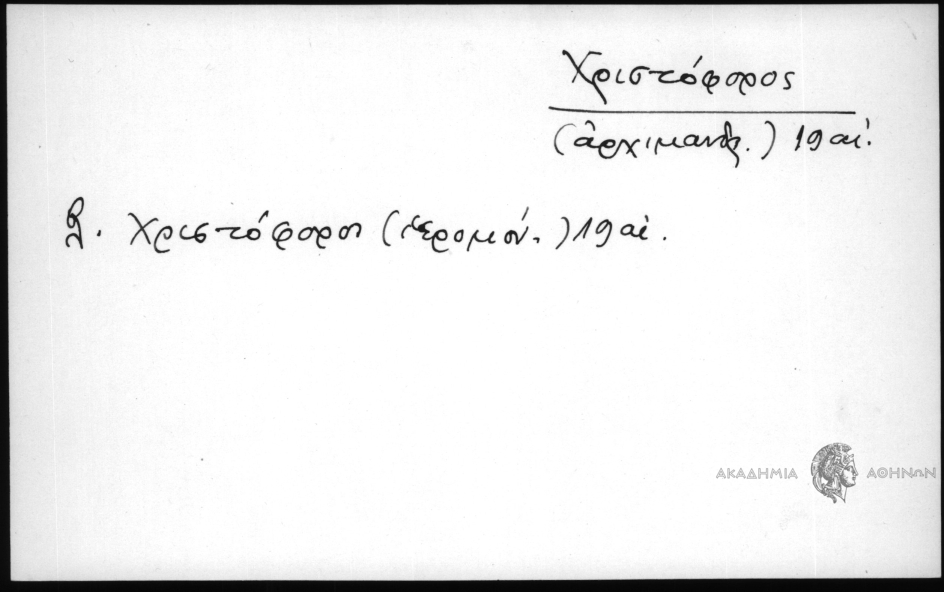 Χριστόφορος
(ἀρχιμανδ.) 19 αἰ.
βλ. Χριστόφορος (ἱερομόν.) 19 αἰ.
ΑΚΑΔΗΜΙΑ ΑΘΗΝΩΝ